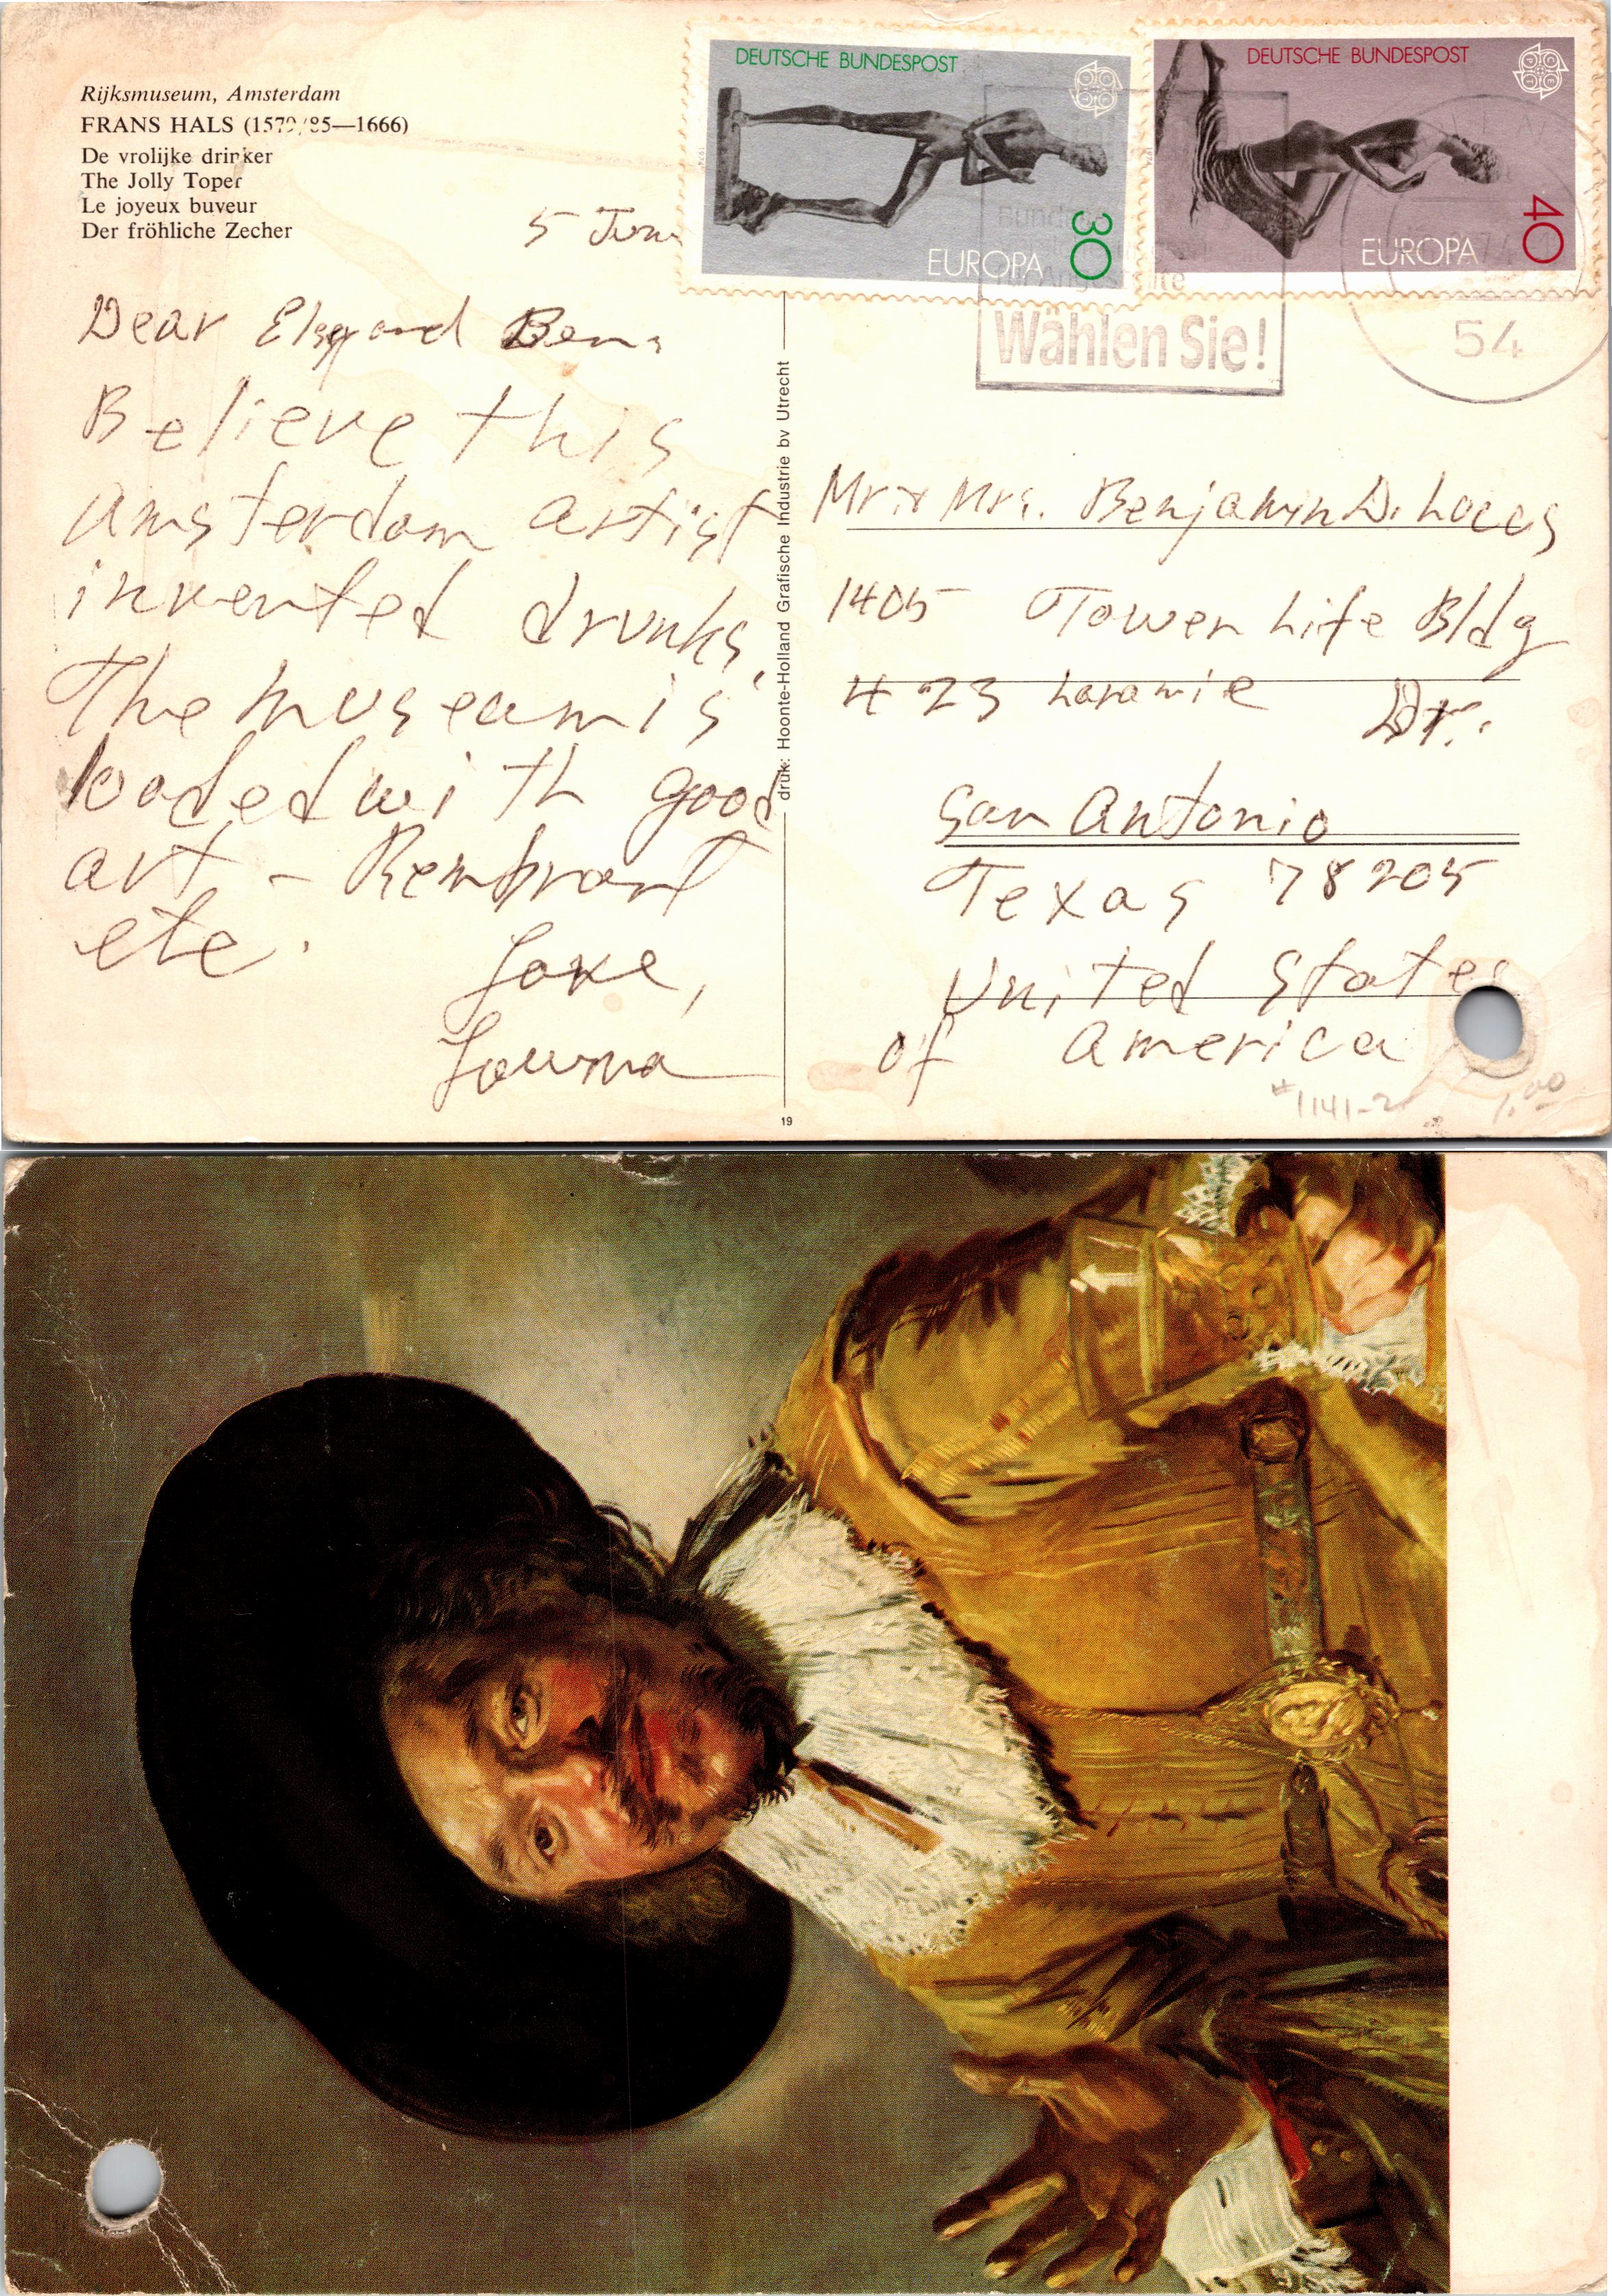 Rijksmuseum, Amsterdam
FRANS HALS (1579/85—1666)
De vrolijke drinker
The Jolly Toper
Le joyeux buveur
Der fröhliche Zecher
5 Jun
Dear and Ben,
Believe this
Amsterdam artist
invented drunks.
The museam is
loaded with good
art - Rembrant
etc.
Love,
DEUTSCHE BUNDESPOST
30
EUROPA
DEUTSCHE BUNDESPOST
40
EUROPA
Wählen Sie!
54
druk: Hoonte-Holland Grafische Industrie bv Utrecht
19
Mr & Mrs. Benjamin D. Lucas
1405 Tower Life Bldg
423 Laramie Dr.
San Antonio
Texas 78205
United States
of America
#1141-2
1.00